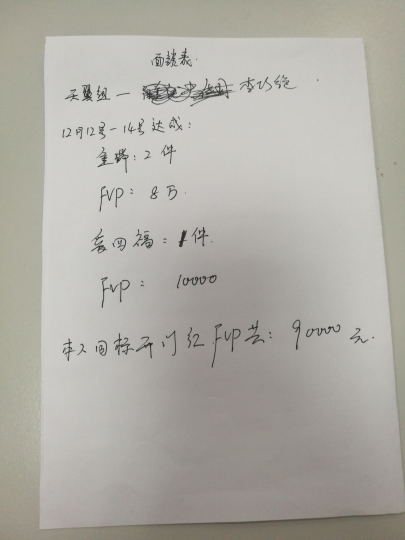 面谈表
天翼组一 李巧艳
12月12号-14号达成:
重疾:2件
FYP:8万
爱回福:1件
FYP: 10000
本人目标开门红FYP共:90000元.